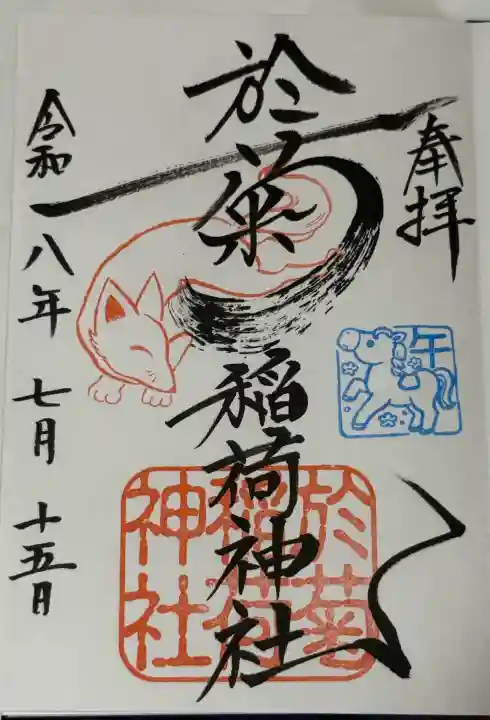 奉拝
午
於菊稲荷神社
於菊
稲荷
神社
令和八年七月十五日